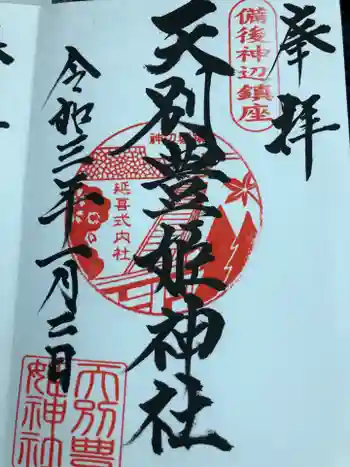 奉拝
備後神辺鎮座
天別豊姫神社
延喜式内社
令和三年一月二日
天別豊
姫神社